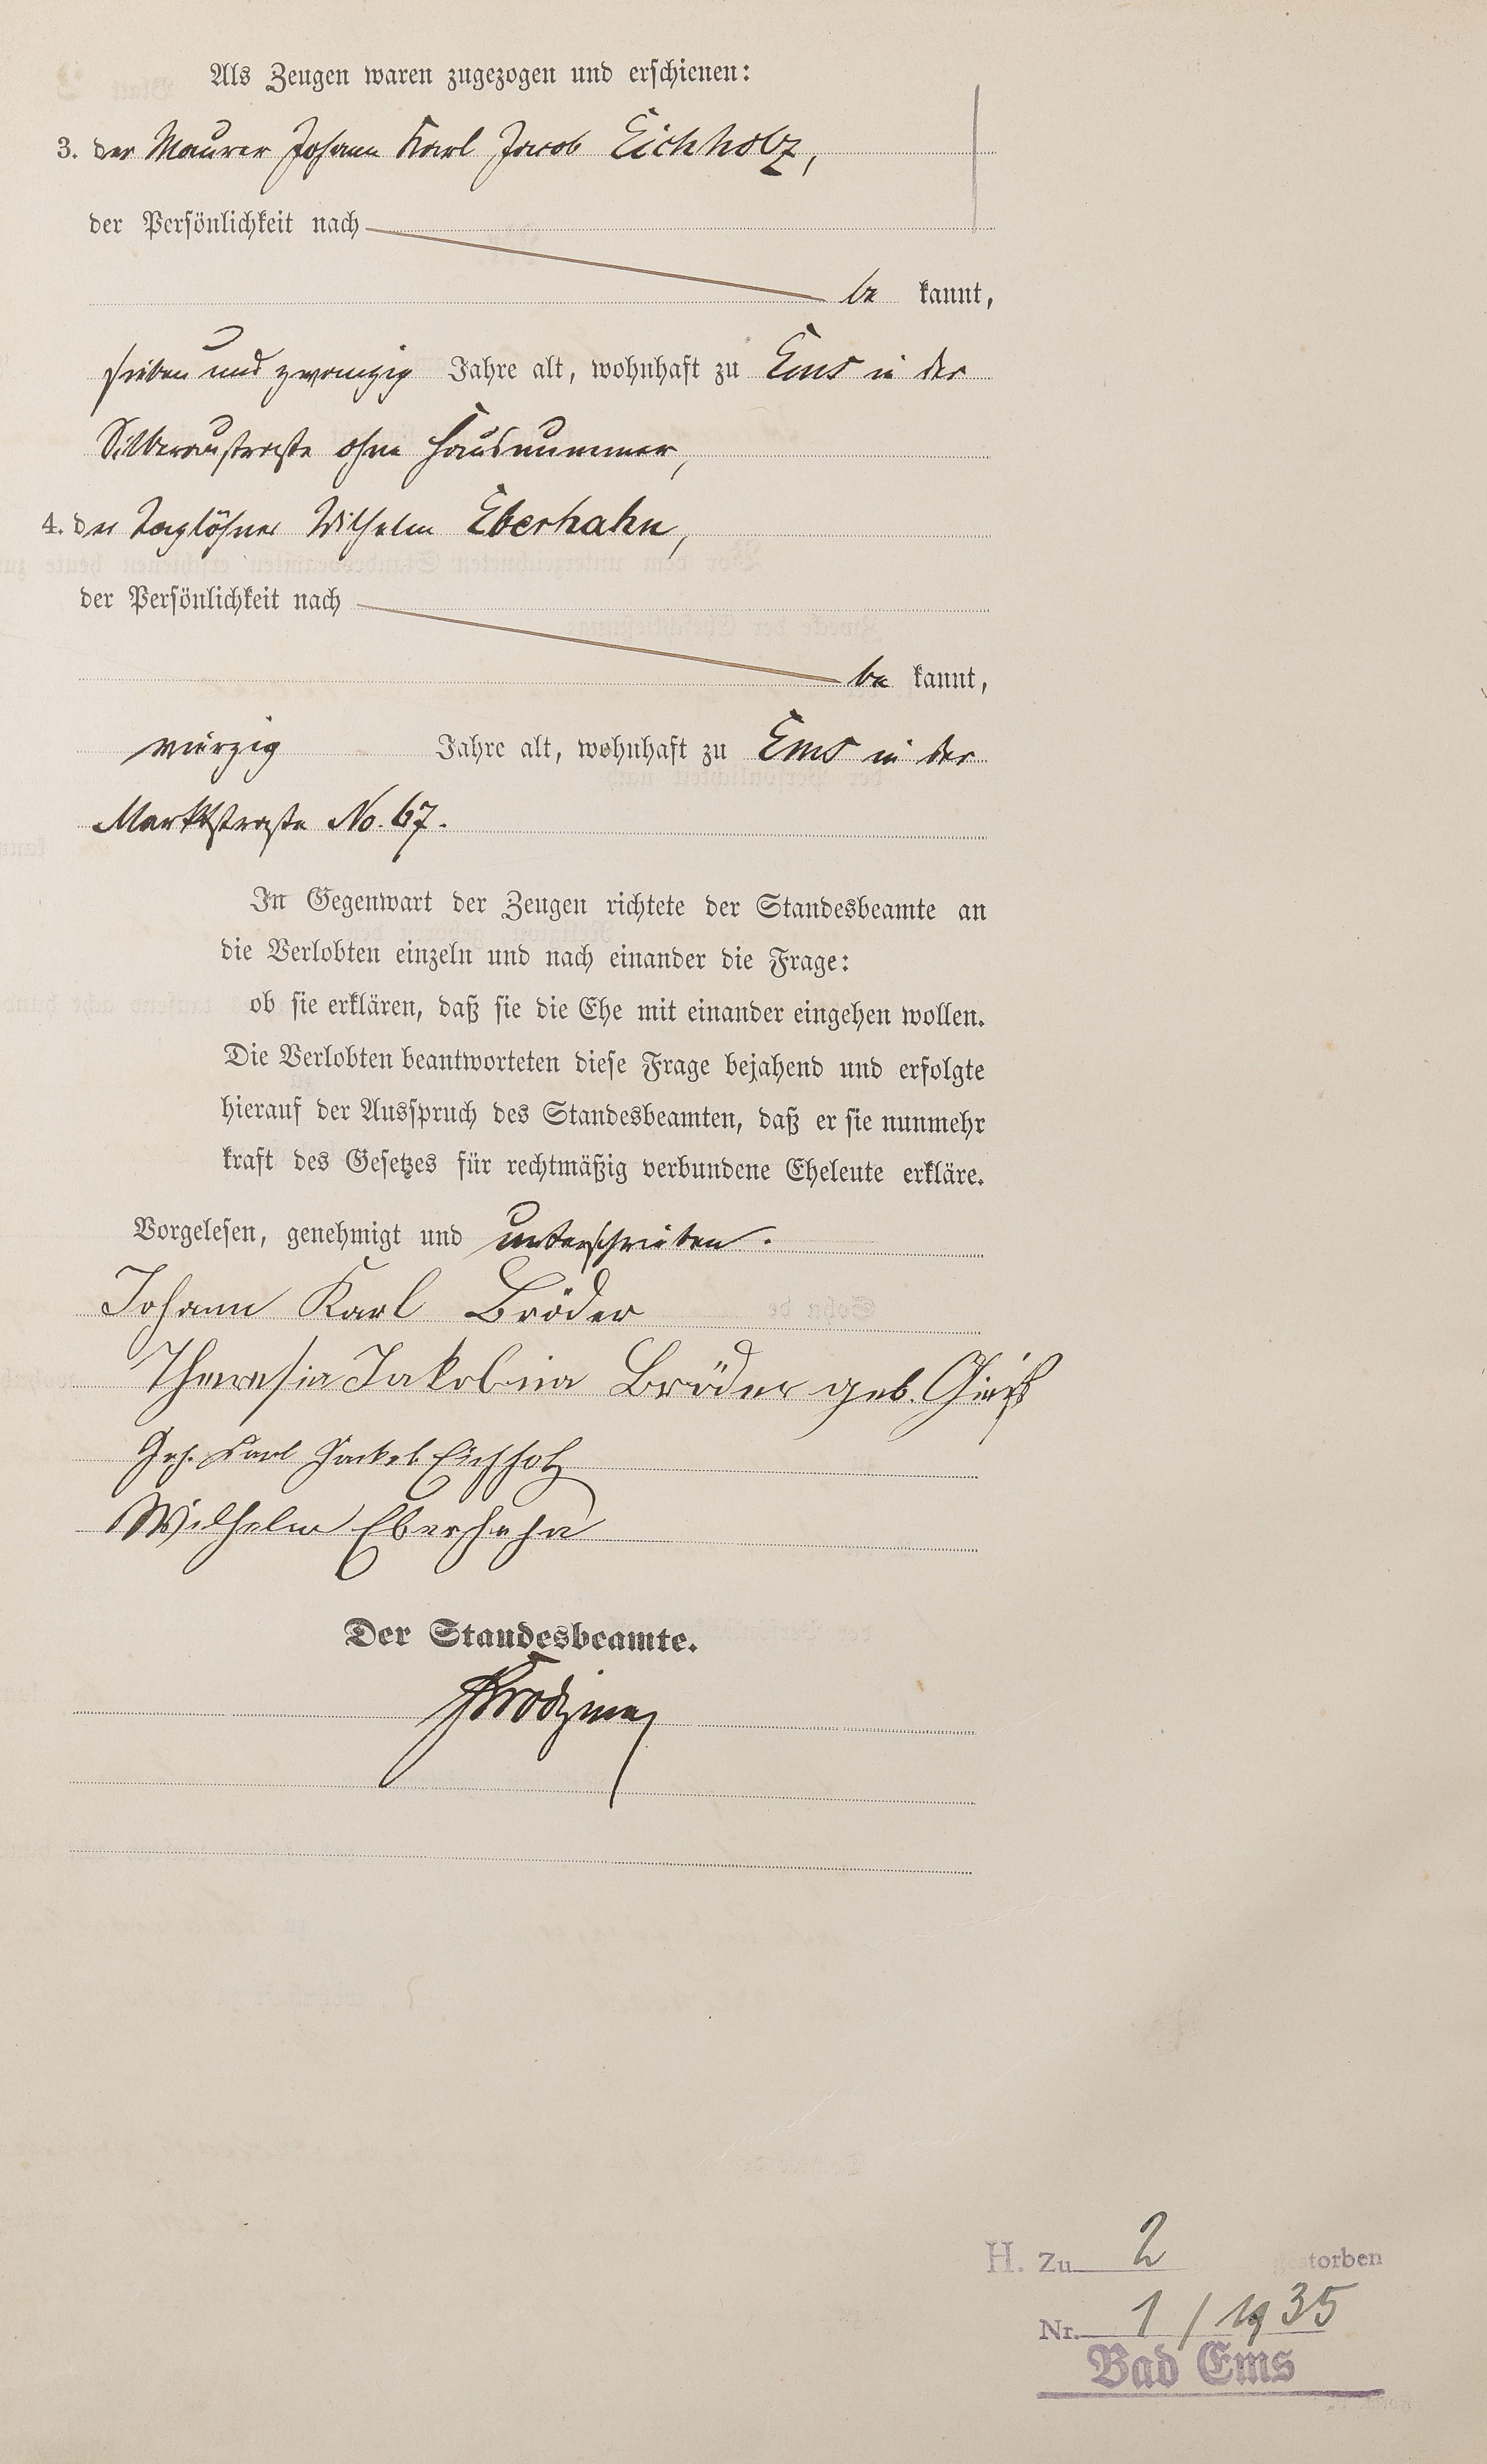 Als Zeugen waren zugezogen und erschienen:
3. der Maurer Johann Karl Jacob Eichholz,
der Persönlichkeit nach
be kannt,
sieben und zwanzig Jahre alt, wohnhaft zu Ems in der
Silberaustraße ohne Hausnummer,
4. der Taglöhner Wilhelm Eberhahn,
der Persönlichkeit nach
be kannt,
vierzig Jahre alt, wohnhaft zu Ems in der
Marktstraße No. 67.
In Gegenwart der Zeugen richtete der Standesbeamte an
die Verlobten einzeln und nach einander die Frage:
ob sie erklären, daß sie die Ehe mit einander eingehen wollen.
Die Verlobten beantworteten diese Frage bejahend und erfolgte
hierauf der Ausspruch des Standesbeamten, daß er sie nunmehr
kraft des Gesetzes für rechtmäßig verbundene Eheleute erkläre.
Vorgelesen, genehmigt und unterschrieben.
Johann Karl Bröder
Theresia Jakobina Bröder geb.
Joh. Karl Jackob Eichholz
Wilhelm Eberhahn
Der Standesbeamte.
H. Zu 2 gestorben
Nr. 1 / 1935
Bad Ems